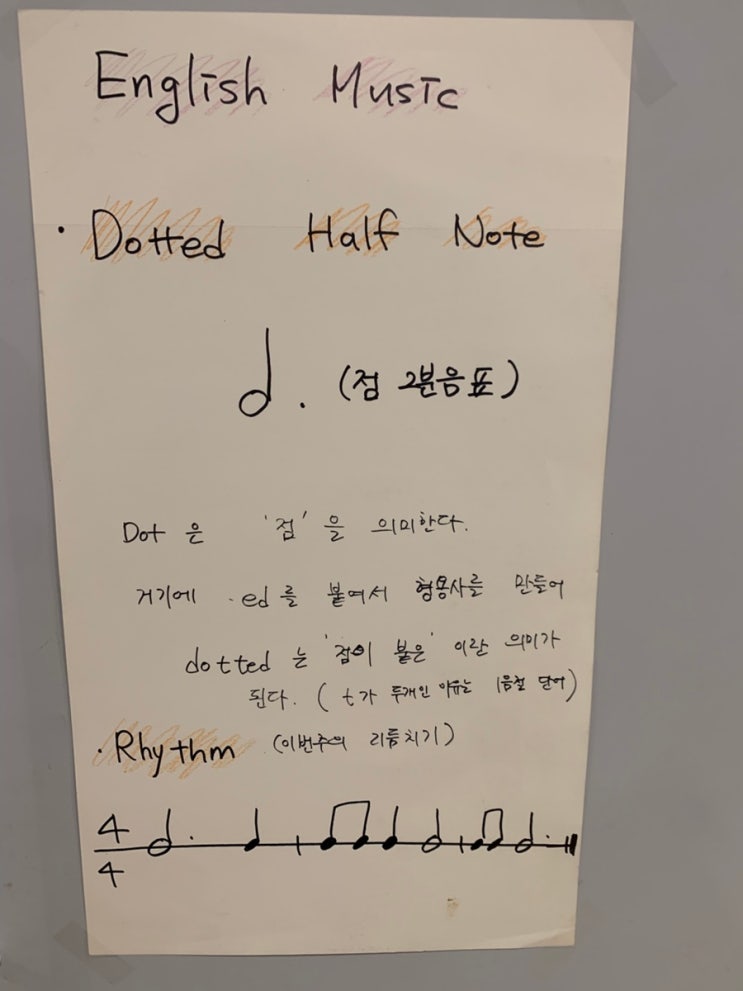 English Music
· Dotted Half Note
(점 2분음표)
Dot 은 '점'을 의미한다.
거기에 -ed를 붙여서 형용사를 만들어
dotted 는 '점이 붙은' 이란 의미가
된다. (t가 두개인 이유는 1음절 단어)
· Rhythm (이번주의 리듬치기)
4
4